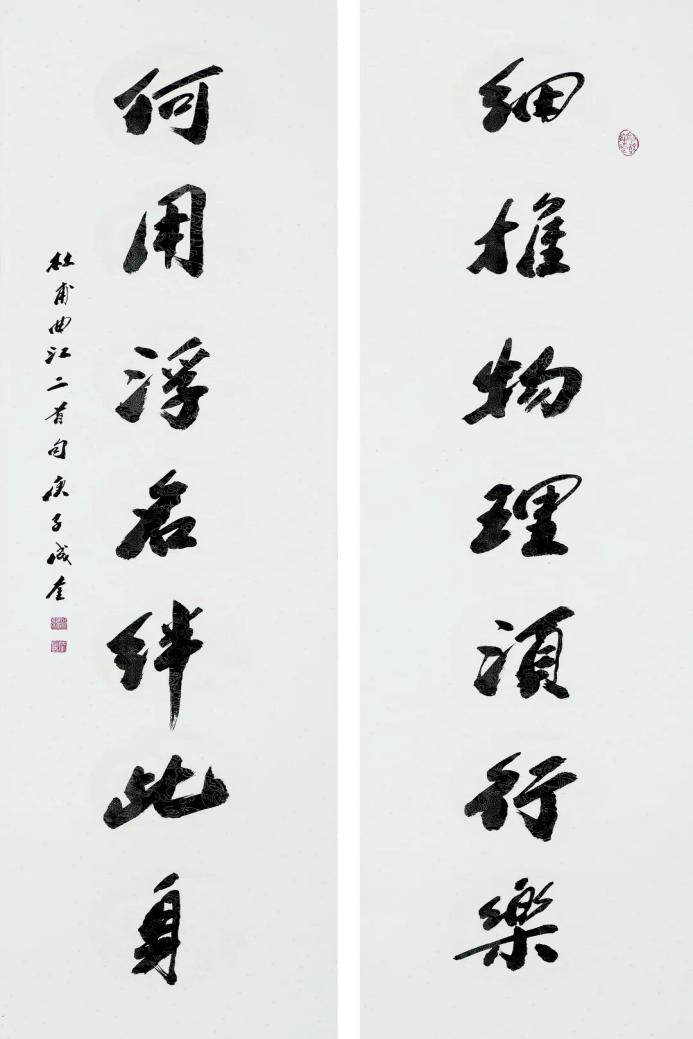 細推物理須行樂
何用浮名絆此身
杜甫曲江二首句庚子成奎